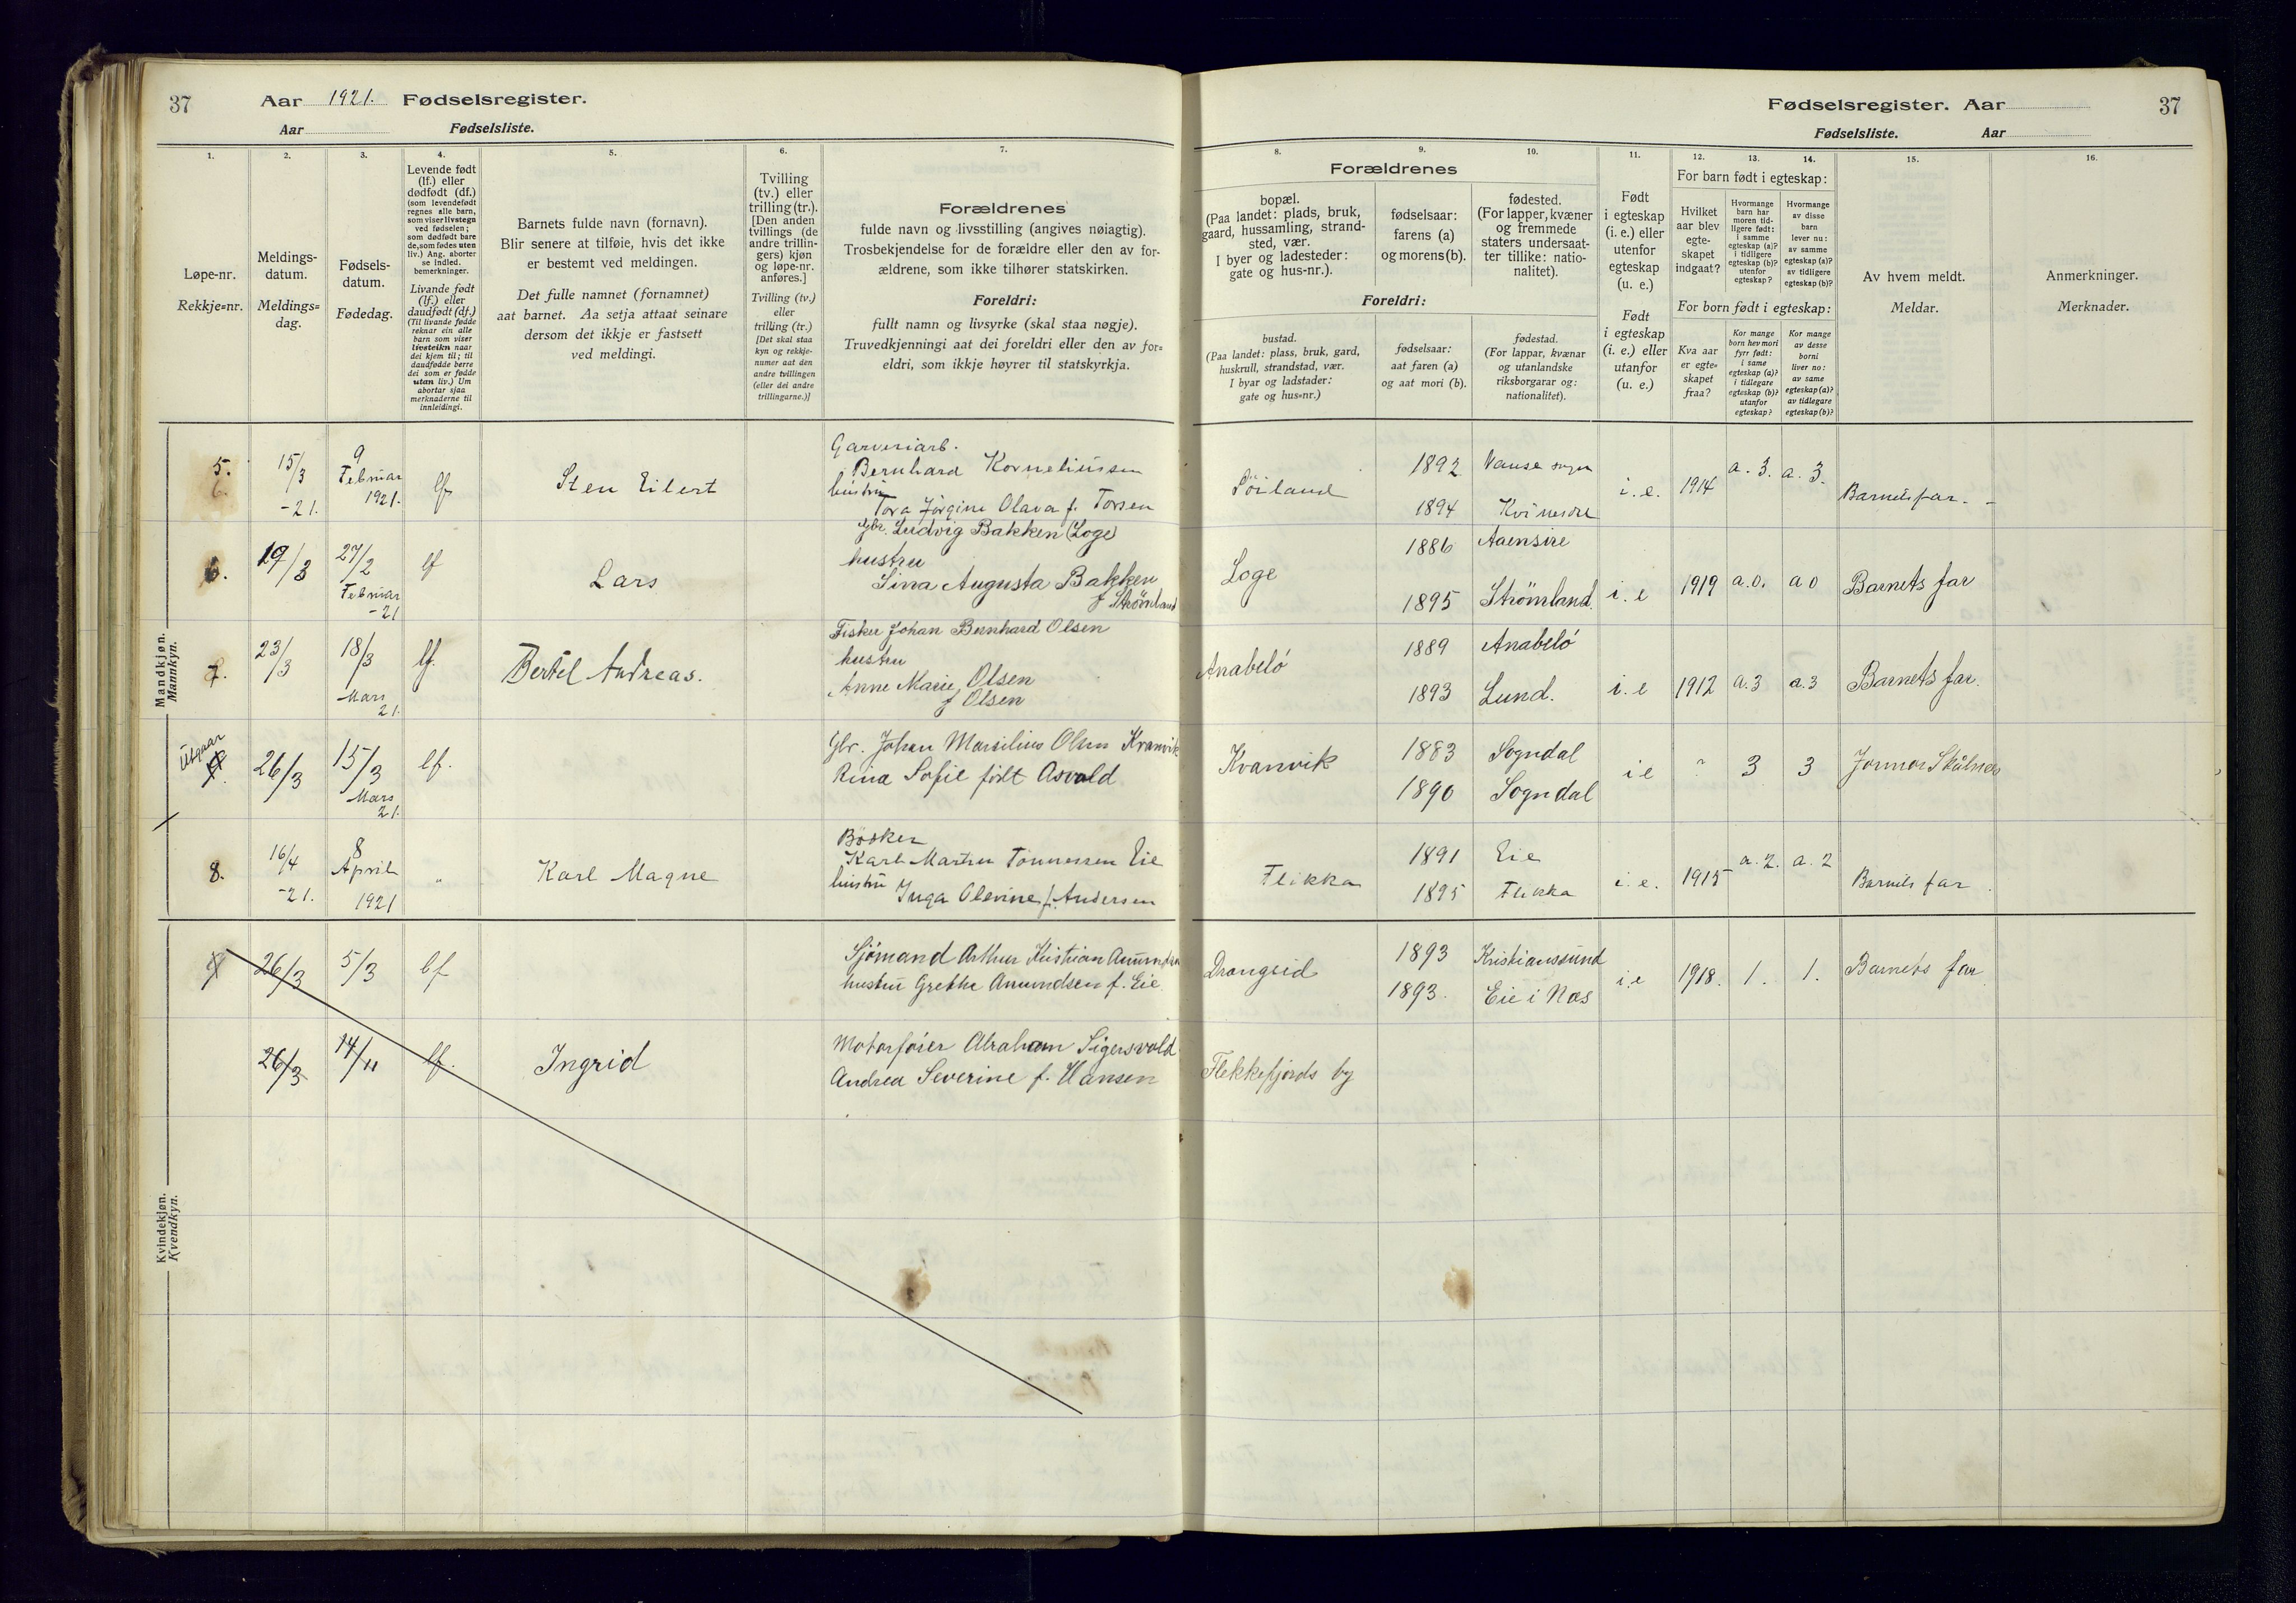 37
Aar 1921. Fødselsregister.
Aar Fødselsliste.
Fødselsregister. Aar
37
Fødselsliste. Aar
1.
Løpe-nr.
Rekkje=nr.
2.
Meldings-
datum.
Meldings=
dag.
3.
Fødsels-
datum.
Fødedag.
4.
Levende født
(lf.) eller
dødfødt (df.)
(som levendefødt
regnes alle barn,
som viser livstegn
ved fødselen;
som dødfødt bare
de, som fødes uten
liv.) Ang. aborter
se indled.
bemerkninger.
Livande født
(lf.) eller
daudfødt (df.)
(Til livande fødde
reknar ein alle
barn som viser
livsteikn naar
dei kjem til; til
daudfødde berre
dei som er fødde
utan liv.) Um
abortar sjaa
merknaderne til
innleidingi.
5.
Barnets fulde navn (fornavn).
Blir senere at tilføie, hvis det ikke
er bestemt ved meldingen.
Det fulle namnet (fornamnet)
aat barnet. Aa setja attaat seinare
dersom det ikkje er fastsett
ved meldingi.
6.
Tvilling
(tv.) eller
trilling (tr.).
[Den anden
tvillings (de
andre trillin-
gers) kjøn
og løpe-nr.
anføres.]
Tvilling (tv.)
eller
trilling (tr.)
[Det skal staa
kyn og rekkje-
numer aat den
andre tvillingen
(eller dei andre
trillingarne.)]
7.
Forældrenes
fulde navn og livsstilling (angives nøiagtig).
Trosbekjendelse for de forældre eller den av for-
ældrene, som ikke tilhører statskirken.
Foreldri:
fullt namn og livsyrke (skal staa nøgje).
Truvedkjenningi aat dei foreldri eller den av for=
eldri, som ikkje høyrer til statskyrkja.
8.
Forældrenes
bopæl.
(Paa landet: plads, bruk,
gaard, hussamling, strand-
sted, vær.
I byer og ladesteder:
gate og hus-nr.).
Foreldri:
bustad.
(Paa landet: plass, bruk, gard,
huskrull, strandstad, vær.
I byar og ladstader:
gate og hus=nr.)
9.
fødselsaar:
farens (a)
og morens (b).
fødselsaar:
aat faren (a)
og aat mori (b).
10.
fødested.
(For lapper, kvæner
og fremmede
staters undersaat-
ter tillike: natio-
nalitet).
fødestad.
(For lappar, kvænar
og utanlandske
riksborgarar og:
nationalitet).
11.
Født
i egteskap
(i. e.) eller
utenfor
egteskap
(u. e.)
Født
i egteskap
(i. e.) eller
utanfor
(u. e.)
12.
For barn født i egteskap:
Hvilket
aar blev
egte-
skapet
indgaat?
For born født i egteskap:
Kva aar
er egte-
skapet
fraa?
13.
Hvormange
barn har
moren tid-
ligere født:
i samme
egteskap (a)?
i tidligere
egteskap (b)?
utenfor
egteskap?
Kor mange
born hev mori
fyrr født:
i same
egteskap (a)?
i tidlegare
egteskap (b)?
utanfor
egteskap?
14.
Hvormange
av disse
barn
lever nu:
av samme
egteskap (a)?
av tidligere
egteskap (b)?
Kor mange
av desse
borni
liver no:
av same
egteskap (a)?
av tidlegare
egteskap (b)?
15.
Av hvem meldt.
Meldar.
16.
Anmerkninger.
Merknader.
Mandkjøn.
Mannkyn.
5.
15/3
-21.
9
Februar
1921.
lf
Sten Eilert
Garveriarb.
Bernhard Korneliussen
hustru
Tora Jørgine Olava f. Torsen
1892
1894
Vanse sogn
i. e.
1914
a. 3.
a. 3.
Barnets far.
6.
19/3
27/2
Februar
-21
lf
Lars
Gbr. Ludvig Bakken (Loge)
hustru
Sina Augusta Bakken
f Strømland
Loge
1886
1895
Aaensire
Strømland
i. e
1919
a.0.
a 0
Barnets far
7.
23/3
18/3
Mars
21.
lf.
Bertel Andreas.
Fisker Johan Bernhard Olsen
hustru
Anne Marie Olsen
f Olsen
Anabeló
1889
1893
Anabeló
Lund.
i. e
1912
a.3
a.3
Barnets far.
Utgaar
26/3
15/3
Mars
21.
lf.
Gbr. Johan Marsilius Olsen Kvanvik
Rina Sofie født Osvold
Kvanvik
1883
1890
Sogndal
Sogndal
i e
?
3
3
8.
16/4
-21.
8
April
1921
"
Karl Magne
Bøsker
Karl Martin Tønnessen Eie
hustru
Inga Olevine f. Andersen
Flikka
1891
1895
Eie
Flikka
i. e.
1915
a. 2.
a. 2
Barnets far
Kvindekjøn.
Kvendkyn.
26/3
5/3
lf
Sjømand Arthur Kristian Amundsen
hustru Grethe Amundsen f. Eie
Drangeid
1893
1893.
Kristianssund
Eie i Nes
i.e
1918.
1.
1.
Barnets far
26/3
14/11
lf.
Ingrid
Motorfører Abraham Sigersvold
Andrea Severine f. Hansen
Flekkefjords by